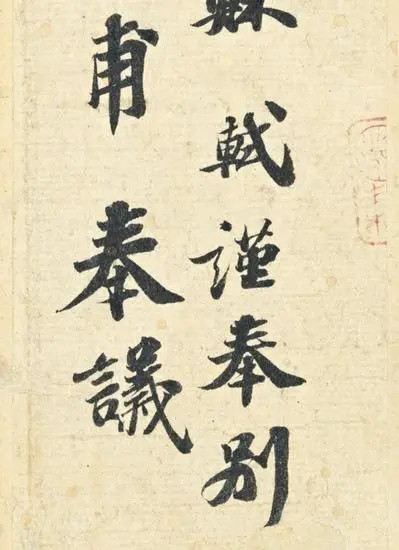 蘇軾謹奉別
甫奉議